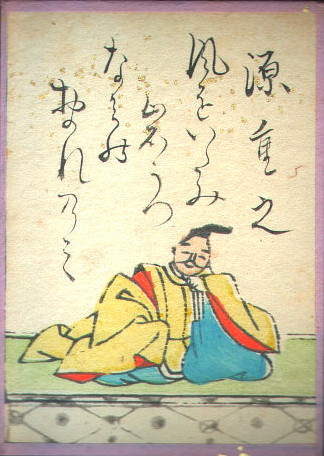 源重之
風をいたみ
岩うつ
なみの
おのれのミ